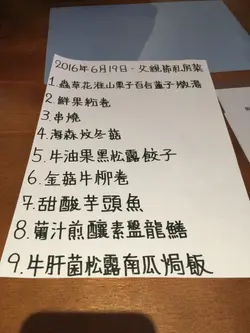 2016年6月19日-父親節私房菜
1.蟲草花淮山栗子百合蓮子燉湯
2.鮮果粉卷
3.串燒
4.海森炆冬菇
5.牛油果黑松露餃子
6.金菇牛柳卷
7.甜酸芋頭魚
8.葡汁煎釀素盤龍鱔
9.牛肝菌松露南瓜焗飯